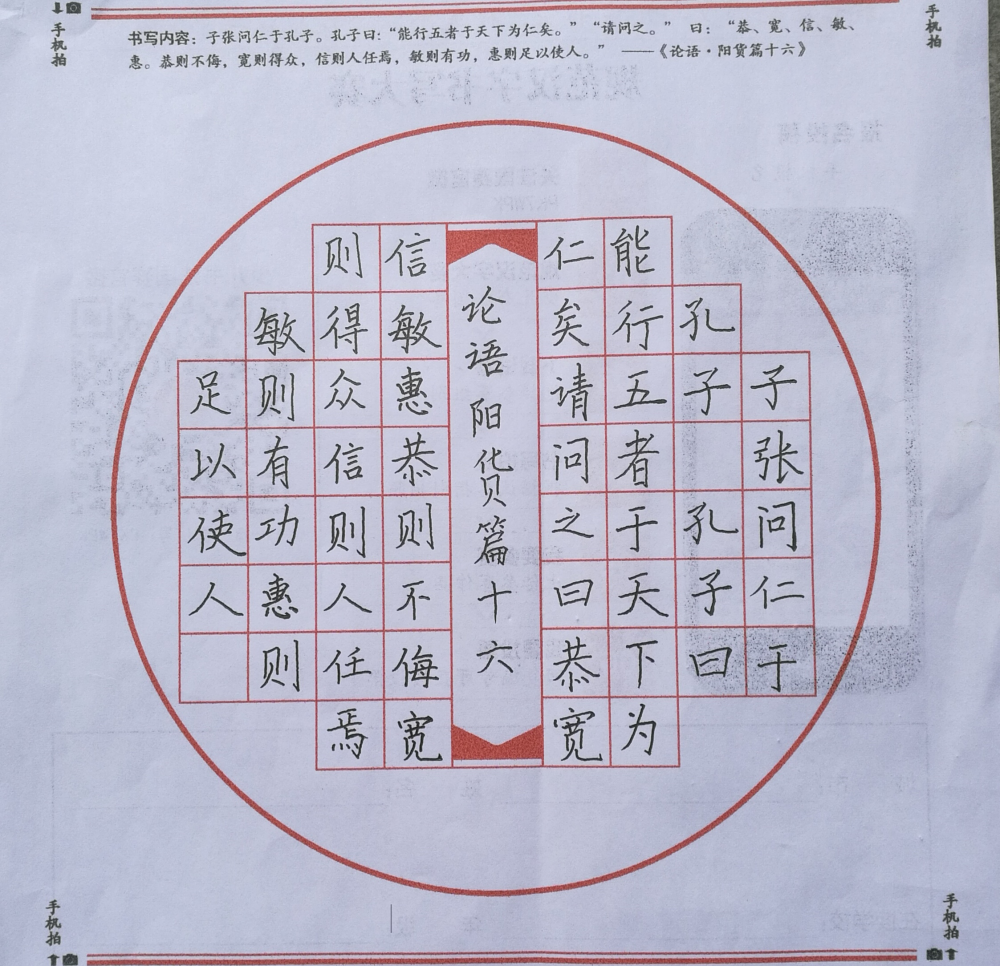 手机拍
手机拍
书写内容：子张问仁于孔子。孔子曰：“能行五者于天下为仁矣。” “请问之。” 曰： “恭、宽、信、敏、
惠。恭则不侮，宽则得众，信则人任焉，敏则有功，惠则足以使人。” ——《论语·阳货篇十六》
子张问仁于
孔子 孔子曰
能行五者于天下为
仁矣请问之曰恭宽
论语 阳货篇十六
信敏惠恭则不侮宽
则得众信则人任焉
敏则有功惠则
足以使人
手机拍
手机拍